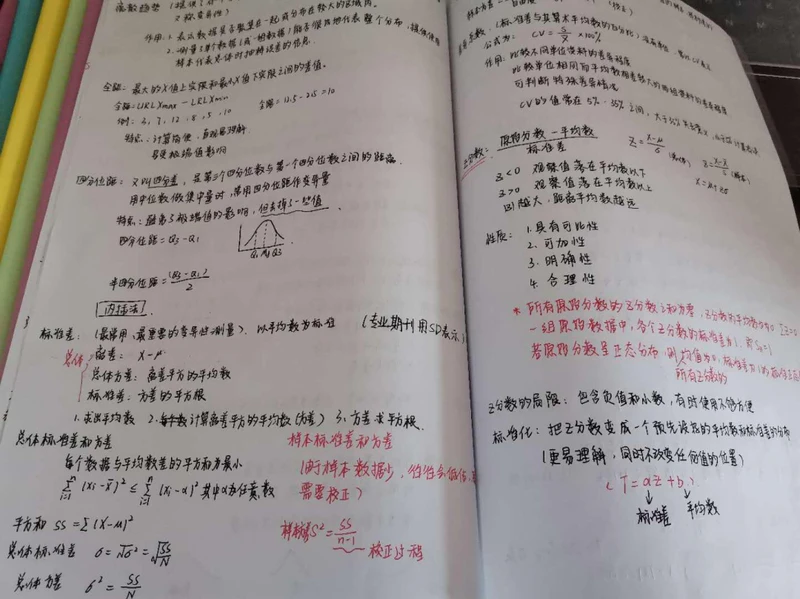 离散趋势
作用：1. 表示数据是否聚集在一起或分布在较大的区域内。
全距：最大的X值上实限和最小X值下实限之间的差值。
全距=URLXmax－LRLXmin
例：3, 7, 12, 8, 5, 10
特点：计算简便，直观易理解
易受极端值影响
四分位距：又叫四分差，是第三个四分位数与第一个四分位数之间的距离
用中位数做集中量时，常用四分位距作变异量
特点：极端值的影响，但去掉了一些值
四分位距=Q₃－Q₁
半四分位距=(Q₃－Q₁)/2
内插法
标准差：(最常用，最重要的变异性测量)，以平均数为标准 (专业期刊用SD表示)
总体
离差：X－μ
总体方差：离差平方的平均数
标准差：方差的平方根
1. 求出平均数 2. 计算离差平方的平均数(方差) 3. 方差求平方根
总体标准差和方差
每个数据与平均数差的平方和为最小
∑(Xi－X̄)² ≤ ∑(Xi－a)² 其中a为任意数
平方和 SS=∑(X－μ)²
总体标准差 σ=√σ²=√SS/N
总体方差 σ²=SS/N
样本标准差和方差
需要校正)
S²=SS/n-1
校正过程
(标准差与其算术平均数的百分比)
公式为：CV=S/X̄ ×100%
作用：比较不同单位资料的差异程度
比较单位相同而平均数相差较大的
可判断特殊差异情况
CV的值常在5%-35%之间
Z分数：原始分数－平均数/标准差 Z=X－μ/σ Z=X－X̄/S
Z<0 观察值落在平均数以下
Z>0 观察值落在平均数以上
|Z|越大，距离平均数越远
性质：1. 具有可比性
2. 可加性
3. 明确性
4. 合理性
* 所有原始分数的Z分数之和为零，Z分数的平均数为0
一组原始数据中，各个Z分数的标准差为1，即
若原始分数呈正态分布，则均值为0，标准差为1
所有Z分数的
Z分数的局限：包含负值和小数，有时使用不够方便
标准化：把Z分数变成一个预先设定的平均数和标准差的分布
(更易理解，同时不改变任何值的位置)
(T=aZ+b)
标准差 平均数